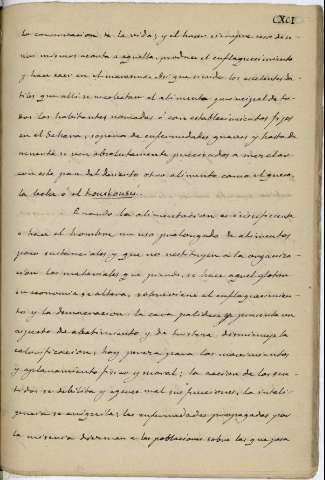 CXCI
la conservacion de la vida; y el hacer siempre uso de u-
nos mismos acarta a aquella, produce el enflaquecimiento
y hace caer en el marasmo. Asi que siendo los excelentes da-
tiles que alli se recolectan el alimento principal de to-
dos los habitantes nomadas ó con establecimientos fijos
en el Sehara, so pena de enfermedades graves y hasta de
muerte se ven absolutamente precisados a mezclar
con este pan del desierto otro alimento como el queso,
la leche ó el kouskousu.
Cuando la alimentacion es insuficiente
ó hace el hombre un uso prolongado de alimentos
poco sustanciales, y que no restituyen a la organiza-
cion los materiales que pierde, se hace aquel gloton
su economia se altera, sobreviene el enflaquecimien-
to y la demacracion; la cara palidece y presenta un
aspecto de abatimiento y de tristeza, disminuye la
calorificacion; hay pereza para los movimientos,
y aplanamiento fisico y moral; la accion de los sen-
tidos se debilita y ejerce mal sus funciones; la inteli-
gencia se aniquila; las enfermedades propagadas por
la miseria diezman a las poblaciones sobre las que pesa